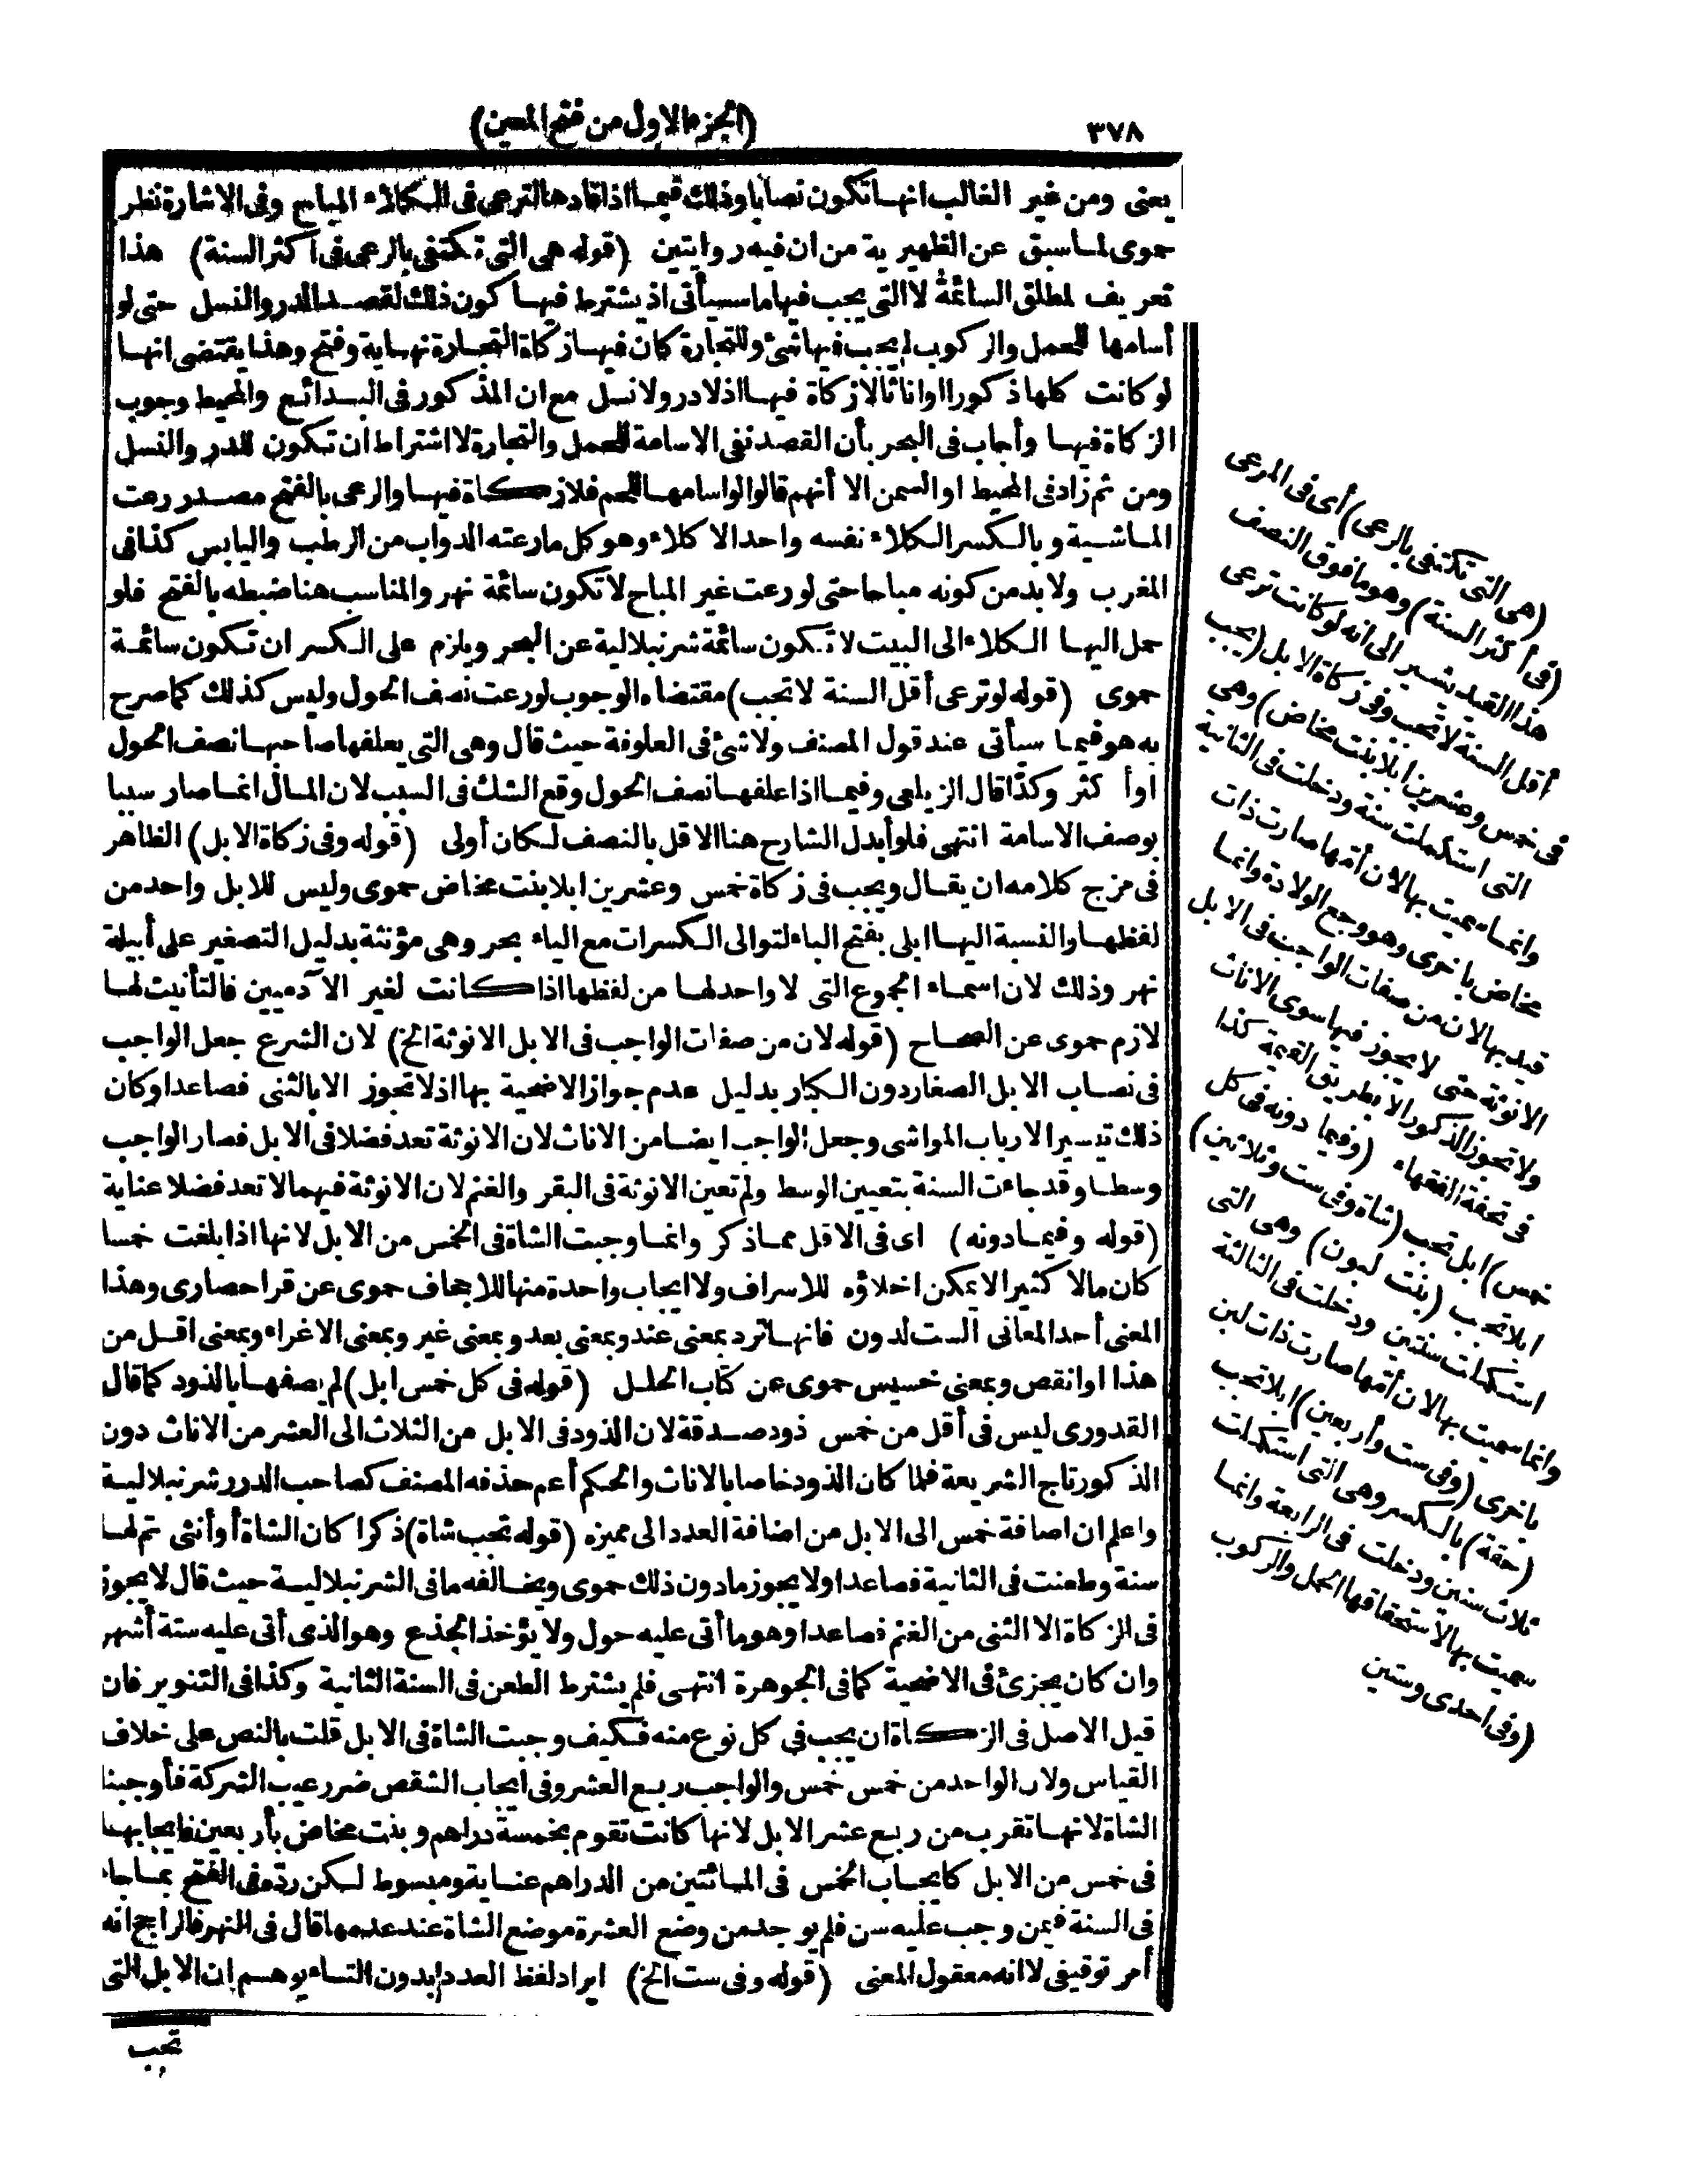 ٣٧٨
(الجزء الاول من فتح المعين)
يعنى ومن غير الغالب انها تكون نصابا وذلك فيما اذا قادها لترعى فى الكلاء المباح وفى الاشارة نظر
حموى لما سبق عن الظهيرية من ان فيه روايتين (قوله هى التى تكتفى بالرعى فى أكثر السنة) هذا
تعريف لمطلق السائمة لا التى يجب فيها ما سيأتى اذ يشترط فيها كون ذلك لقصد الدر والنسل حتى لو
أسامها للحمل والركوب لم يجب فيها شئ وللتجارة كان فيها زكاة التجارة نهاية وفتح وهذا يقتضى انها
لو كانت كلها ذكورا او اناثا لا زكاة فيها اذ لا در ولا نسل مع ان المذكور فى البدائع والمحيط وجوب
الزكاة فيها وأجاب فى البحر بأن القصد نفى الاسامة للحمل والتجارة لا اشتراط ان تكون للدر والنسل
ومن ثم زاد فى المحيط او السمن الا أنهم قالوا لو اسامها للحم فلا زكاة فيها والرعى بالفتح مصدر رعت
الماشية وبالكسر الكلاء نفسه واحد الاكلاء وهو كل ما رعته الدواب من الرطب واليابس كذا فى
المغرب ولا بد من كونه مباحا حتى لو رعت غير المباح لا تكون سائمة نهر والمناسب هنا ضبطه بالفتح فلو
حمل اليها الكلاء الى البيت لا تكون سائمة شرنبلالية عن البحر ويلزم على الكسر ان تكون سائمة
حموى (قوله لو ترعى أقل السنة لا تجب) مقتضاه الوجوب لو رعت نصف الحول وليس كذلك كما صرح
به هو فيما سيأتى عند قول المصنف ولا شئ فى العلوفة حيث قال وهى التى يعلفها صاحبها نصف الحول
او أكثر وكذا قال الزيلعى وفيما اذا علفها نصف الحول وقع الشك فى السبب لان المال انما صار سببا
بوصف الاسامة انتهى فلو أبدل الشارح هنا الاقل بالنصف لكان أولى (قوله وفى زكاة الابل) الظاهر
فى مزج كلامه ان يقال ويجب فى زكاة خمس وعشرين ابلا بنت مخاض حموى وليس للابل واحد من
لفظها والنسبة اليها ابلى بفتح الباء لتوالى الكسرات مع الياء بحر وهى مؤنثة بدليل التصغير على أبيلة
نهر وذلك لان اسماء الجموع التى لا واحد لها من لفظها اذا كانت لغير الآدميين فالتأنيث لها
لازم حموى عن الصحاح (قوله لان من صفات الواجب فى الابل الانوثة الخ) لان الشرع جعل الواجب
فى نصاب الابل الصغار دون الكبار بدليل عدم جواز الاضحية بها اذ لا تجوز الا بالثنى فصاعدا وكان
ذلك تيسيرا لارباب المواشى وجعل الواجب ايضا من الاناث لان الانوثة تعد فضلا فى الابل فصار الواجب
وسطا وقد جاءت السنة بتعيين الوسط ولم تعين الانوثة فى البقر والغنم لان الانوثة فيهما لا تعد فضلا عناية
(قوله وفيما دونه) اى فى الاقل مما ذكر وانما وجبت الشاة فى الخمس من الابل لانها اذا بلغت خمسا
كان مالا كثيرا لا يمكن اخلاؤه للاسراف ولا ايجاب واحدة منها للاجحاف حموى عن قراحصارى وهذا
المعنى أحد المعانى الست لدون فانها ترد بمعنى عند وبمعنى بعد وبمعنى غير وبمعنى الاغراء وبمعنى اقل من
هذا او انقص وبمعنى خسيس حموى عن كتاب الحلل (قوله فى كل خمس ابل) لم يصفها بالذود كما قال
القدورى ليس فى أقل من خمس ذود صدقة لان الذود فى الابل من الثلاث الى العشر من الاناث دون
الذكور تاج الشريعة فلما كان الذود خاصا بالاناث والحكم أعم حذفه المصنف كصاحب الدرر شرنبلالية
واعلم ان اضافة خمس الى الابل من اضافة العدد الى مميزه (قوله تجب شاة) ذكرا كان الشاة أو أنثى تم لها
سنة وطعنت فى الثانية فصاعدا ولا يجوز ما دون ذلك حموى ويخالفه ما فى الشرنبلالية حيث قال لا يجوز
فى الزكاة الا الثنى من الغنم فصاعدا وهو ما أتى عليه حول ولا يؤخذ الجذع وهو الذى أتى عليه ستة أشهر
وان كان يجزئ فى الاضحية كما فى الجوهرة انتهى فلم يشترط الطعن فى السنة الثانية وكذا فى التنوير فان
قيل الاصل فى الزكاة ان يجب فى كل نوع منه فكيف وجبت الشاة فى الابل قلت بالنص على خلاف
القياس ولان الواحد من خمس خمس والواجب ربع العشر وفى ايجاب الشقص ضرر عيب الشركة فأوجبنا
الشاة لانها تقرب من ربع عشر الابل لانها كانت تقوم بخمسة دراهم وبنت مخاض بأربعين فايجابها
فى خمس من الابل كايجاب الخمس فى المائتين من الدراهم عناية ومبسوط لكن رده فى الفتح بما جاء
فى السنة فيمن وجب عليه سن فلم يوجد من وضع العشرة موضع الشاة عند عدمها قال فى النهر فالراجح انه
أمر توقيفى لا انه معقول المعنى (قوله وفى ست الخ) ايراد لفظ العدد بدون التاء يوهم ان الابل التى
تجب
(هى التى تكتفى بالرعى) أى فى المرعى
(فى أكثر السنة) وهو ما فوق النصف
هذا القيد يشير الى انه لو كانت ترعى
أقل السنة لا تجب وفى زكاة الابل (يجب
فى خمس وعشرين ابلا بنت مخاض) وهى
التى استكملت سنة ودخلت فى الثانية
وانما سميت بها لان أمها صارت ذات
مخاض باخرى وهو وجع الولادة وانما
قيد بها لان من صفات الواجب فى الابل
الانوثة حتى لا يجوز فيها سوى الاناث
ولا تجوز الذكور الا بطريق القيمة كذا
فى تحفة الفقهاء (وفيما دونه فى كل
خمس) ابل تجب (شاة وفى ست وثلاثين)
ابلا تجب (بنت لبون) وهى التى
استكملت سنتين ودخلت فى الثالثة
وانما سميت بها لان أمها صارت ذات لبن
باخرى (وفى ست وأربعين) ابلا تجب
(حقة) بالكسر وهى التى استكملت
ثلاث سنين ودخلت فى الرابعة وانما
سميت بها لاستحقاقها الحمل والركوب
(وفى احدى وستين